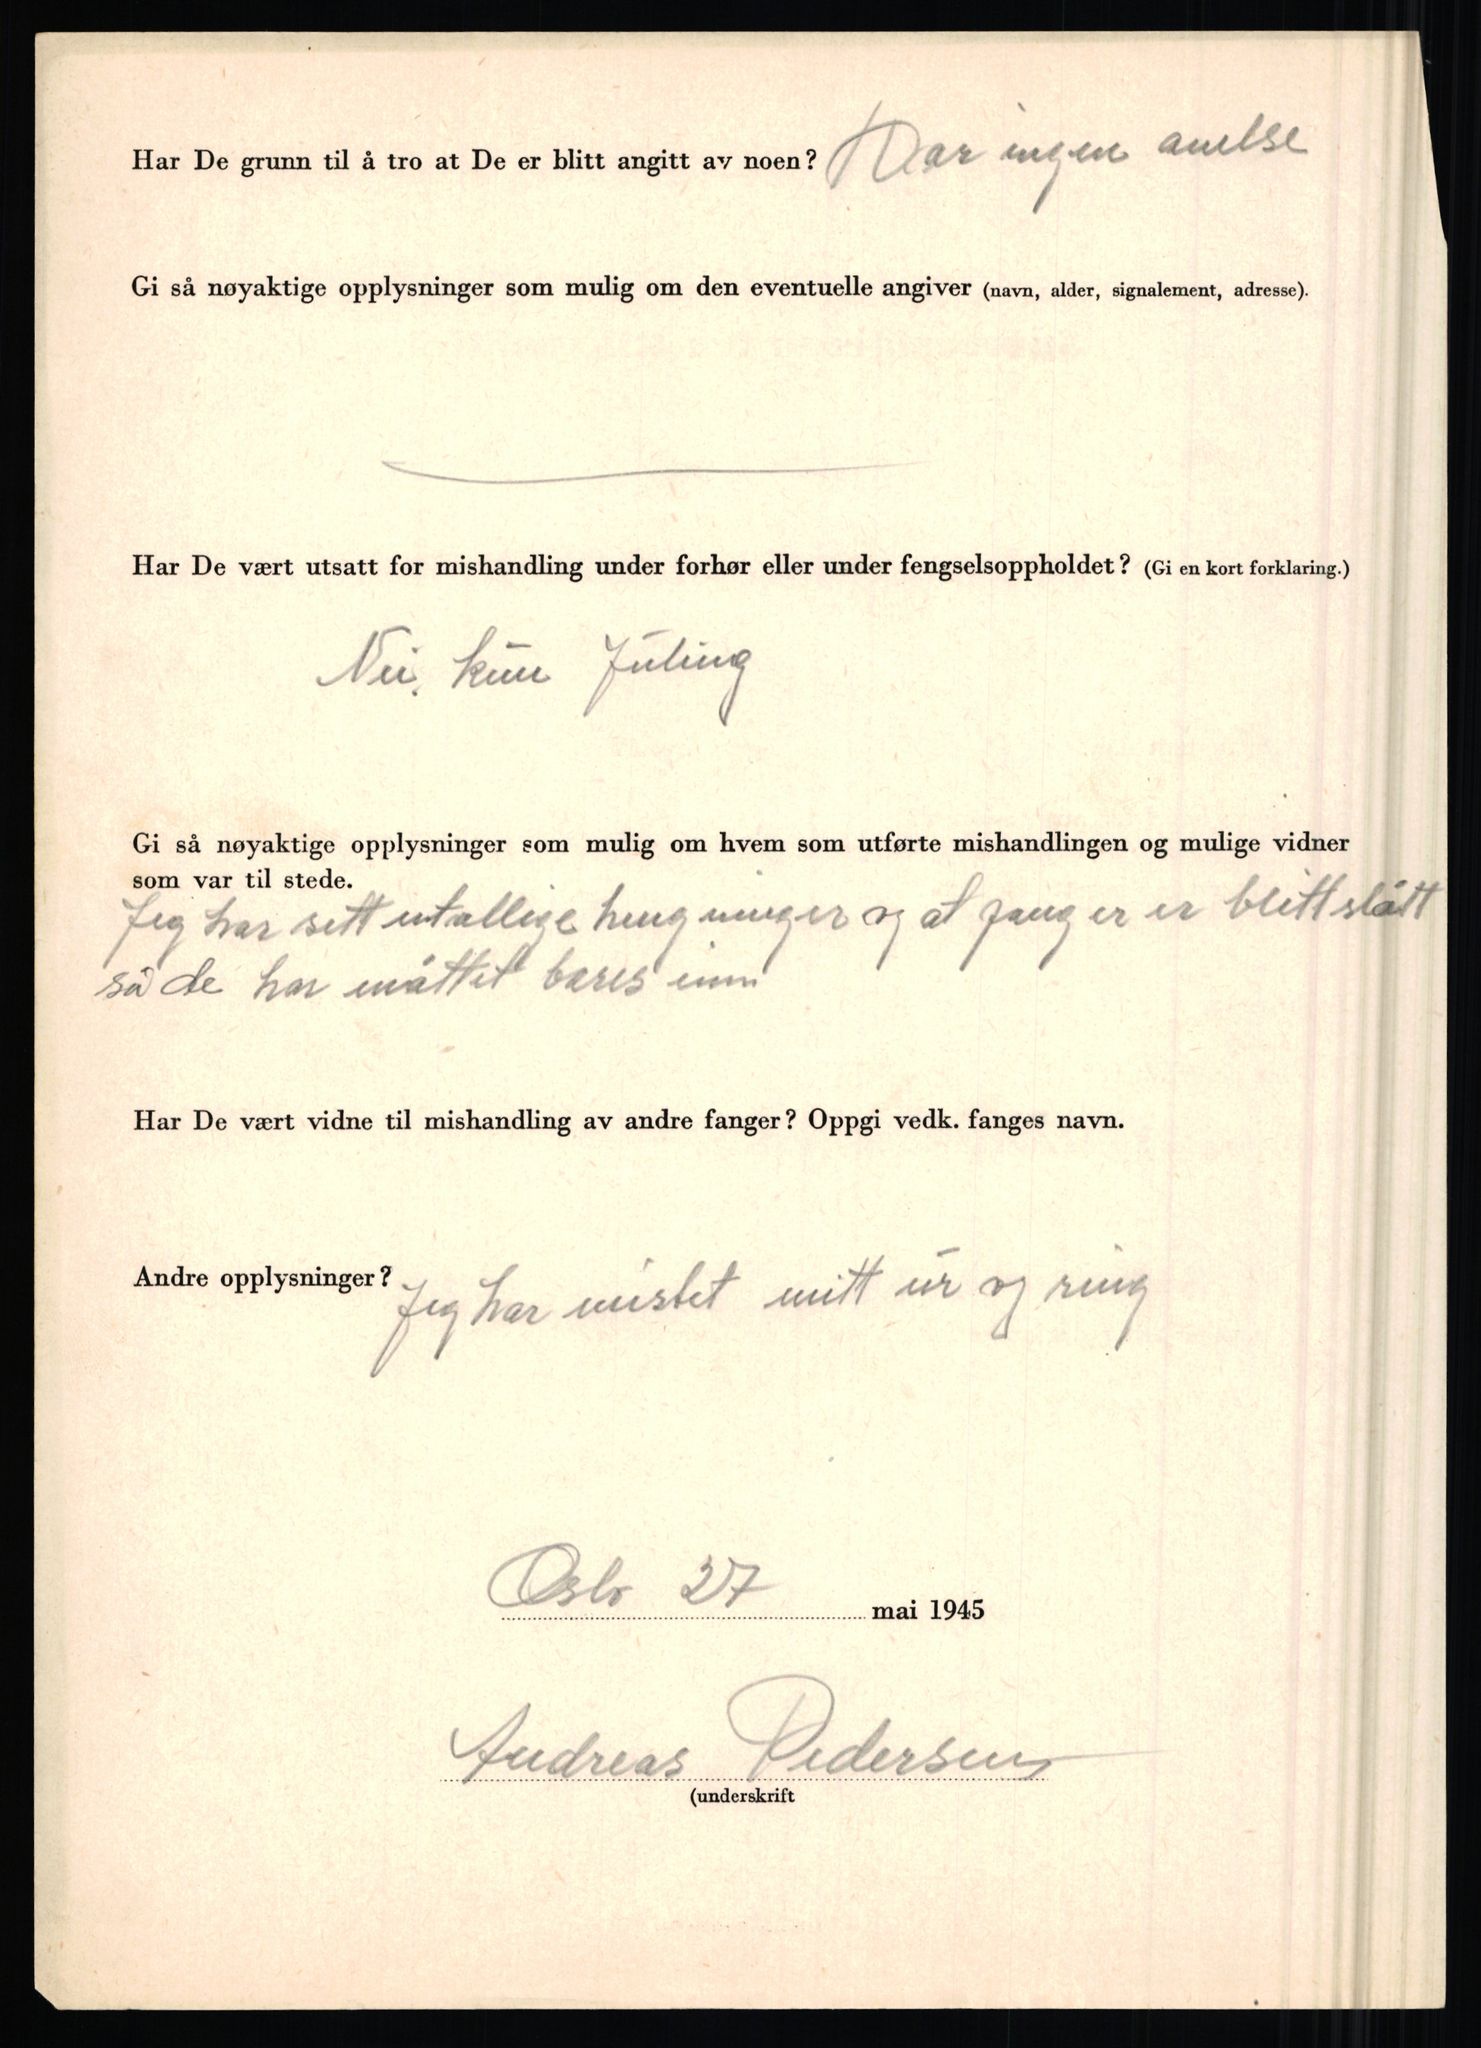 Har De grunn til å tro at De er blitt angitt av noen? Har ingen anelse
Gi så nøyaktige opplysninger som mulig om den eventuelle angiver (navn, alder, signalement, adresse).
Har De vært utsatt for mishandling under forhør eller under fengselsoppholdet? (Gi en kort forklaring.)
Nei, kun Juling
Gi så nøyaktige opplysninger som mulig om hvem som utførte mishandlingen og mulige vidner
som var til stede.
Jeg har sett utallige hengninger og at fanger er blitt slått
så de har måttet bæres inn
Har De vært vidne til mishandling av andre fanger? Oppgi vedk. fanges navn.
Andre opplysninger? Jeg har mistet mitt ur og ring
Oslo 27 mai 1945
Andreas Pedersen
(underskrift